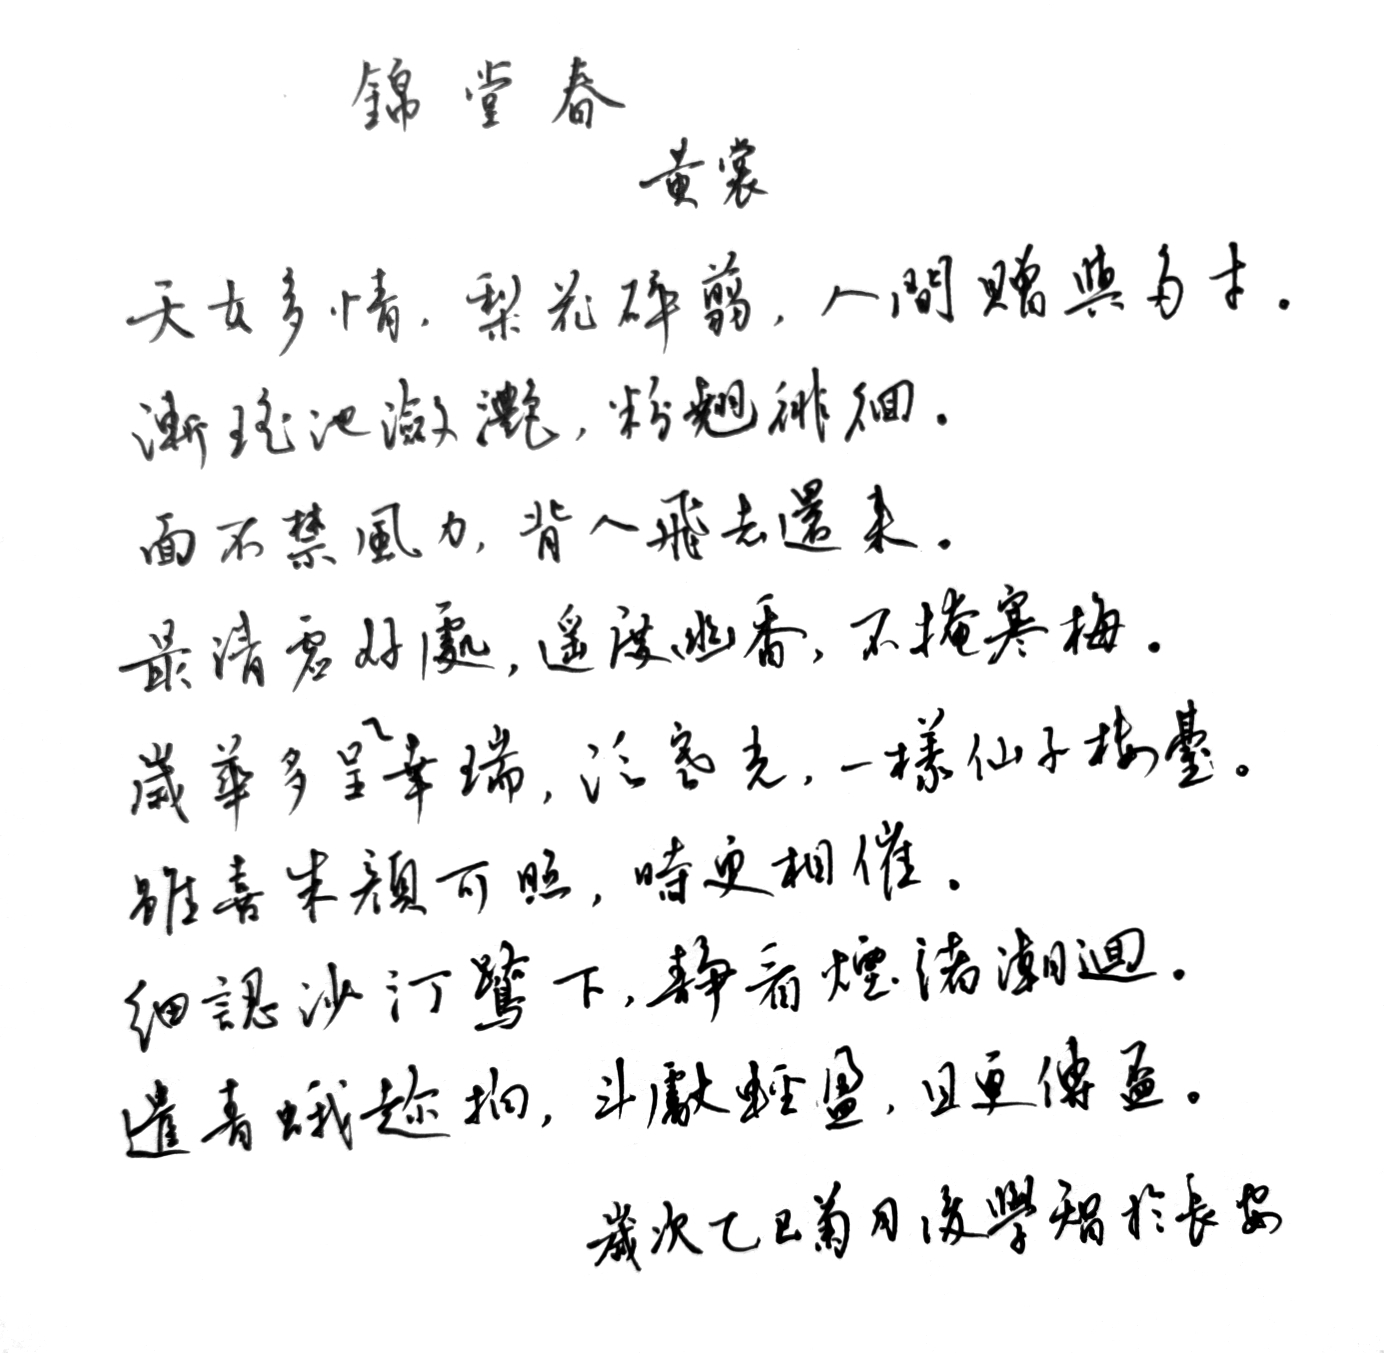 錦堂春
黃裳
天女多情,梨花碎剪,人間贈與多才。
漸瑤池瀲灧,粉翹徘徊。
面不禁風力,背人飛去還來。
最清虛好處,遥度幽香,不掩寒梅。
歲華多呈幸瑞,泛寒光,一樣仙子樓臺。
雖喜朱顏可照,時更相催。
細認沙汀鷺下,靜看煙渚潮迴。
遣青蛾趁拍,斗獻輕盈,且更傳盃。
歲次乙巳菊月後學智於長安